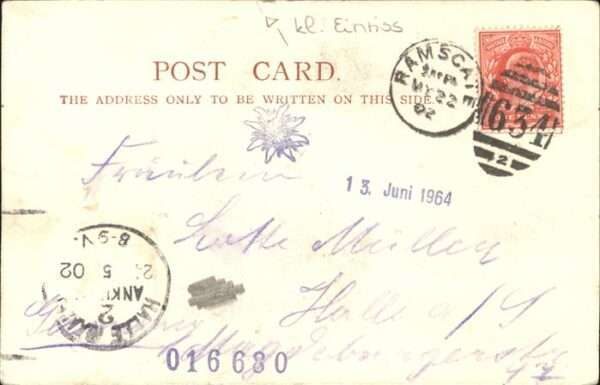 kl. Einriss
POST CARD.
THE ADDRESS ONLY TO BE WRITTEN ON THIS SIDE.
RAMSGATE
MY 22
02
634
2
Fräulein
13. Juni 1964
Lotte Müller
Halle a/S
Magdeburgerstr
HALLE
2
ANK
5 02
8-9V.
016680